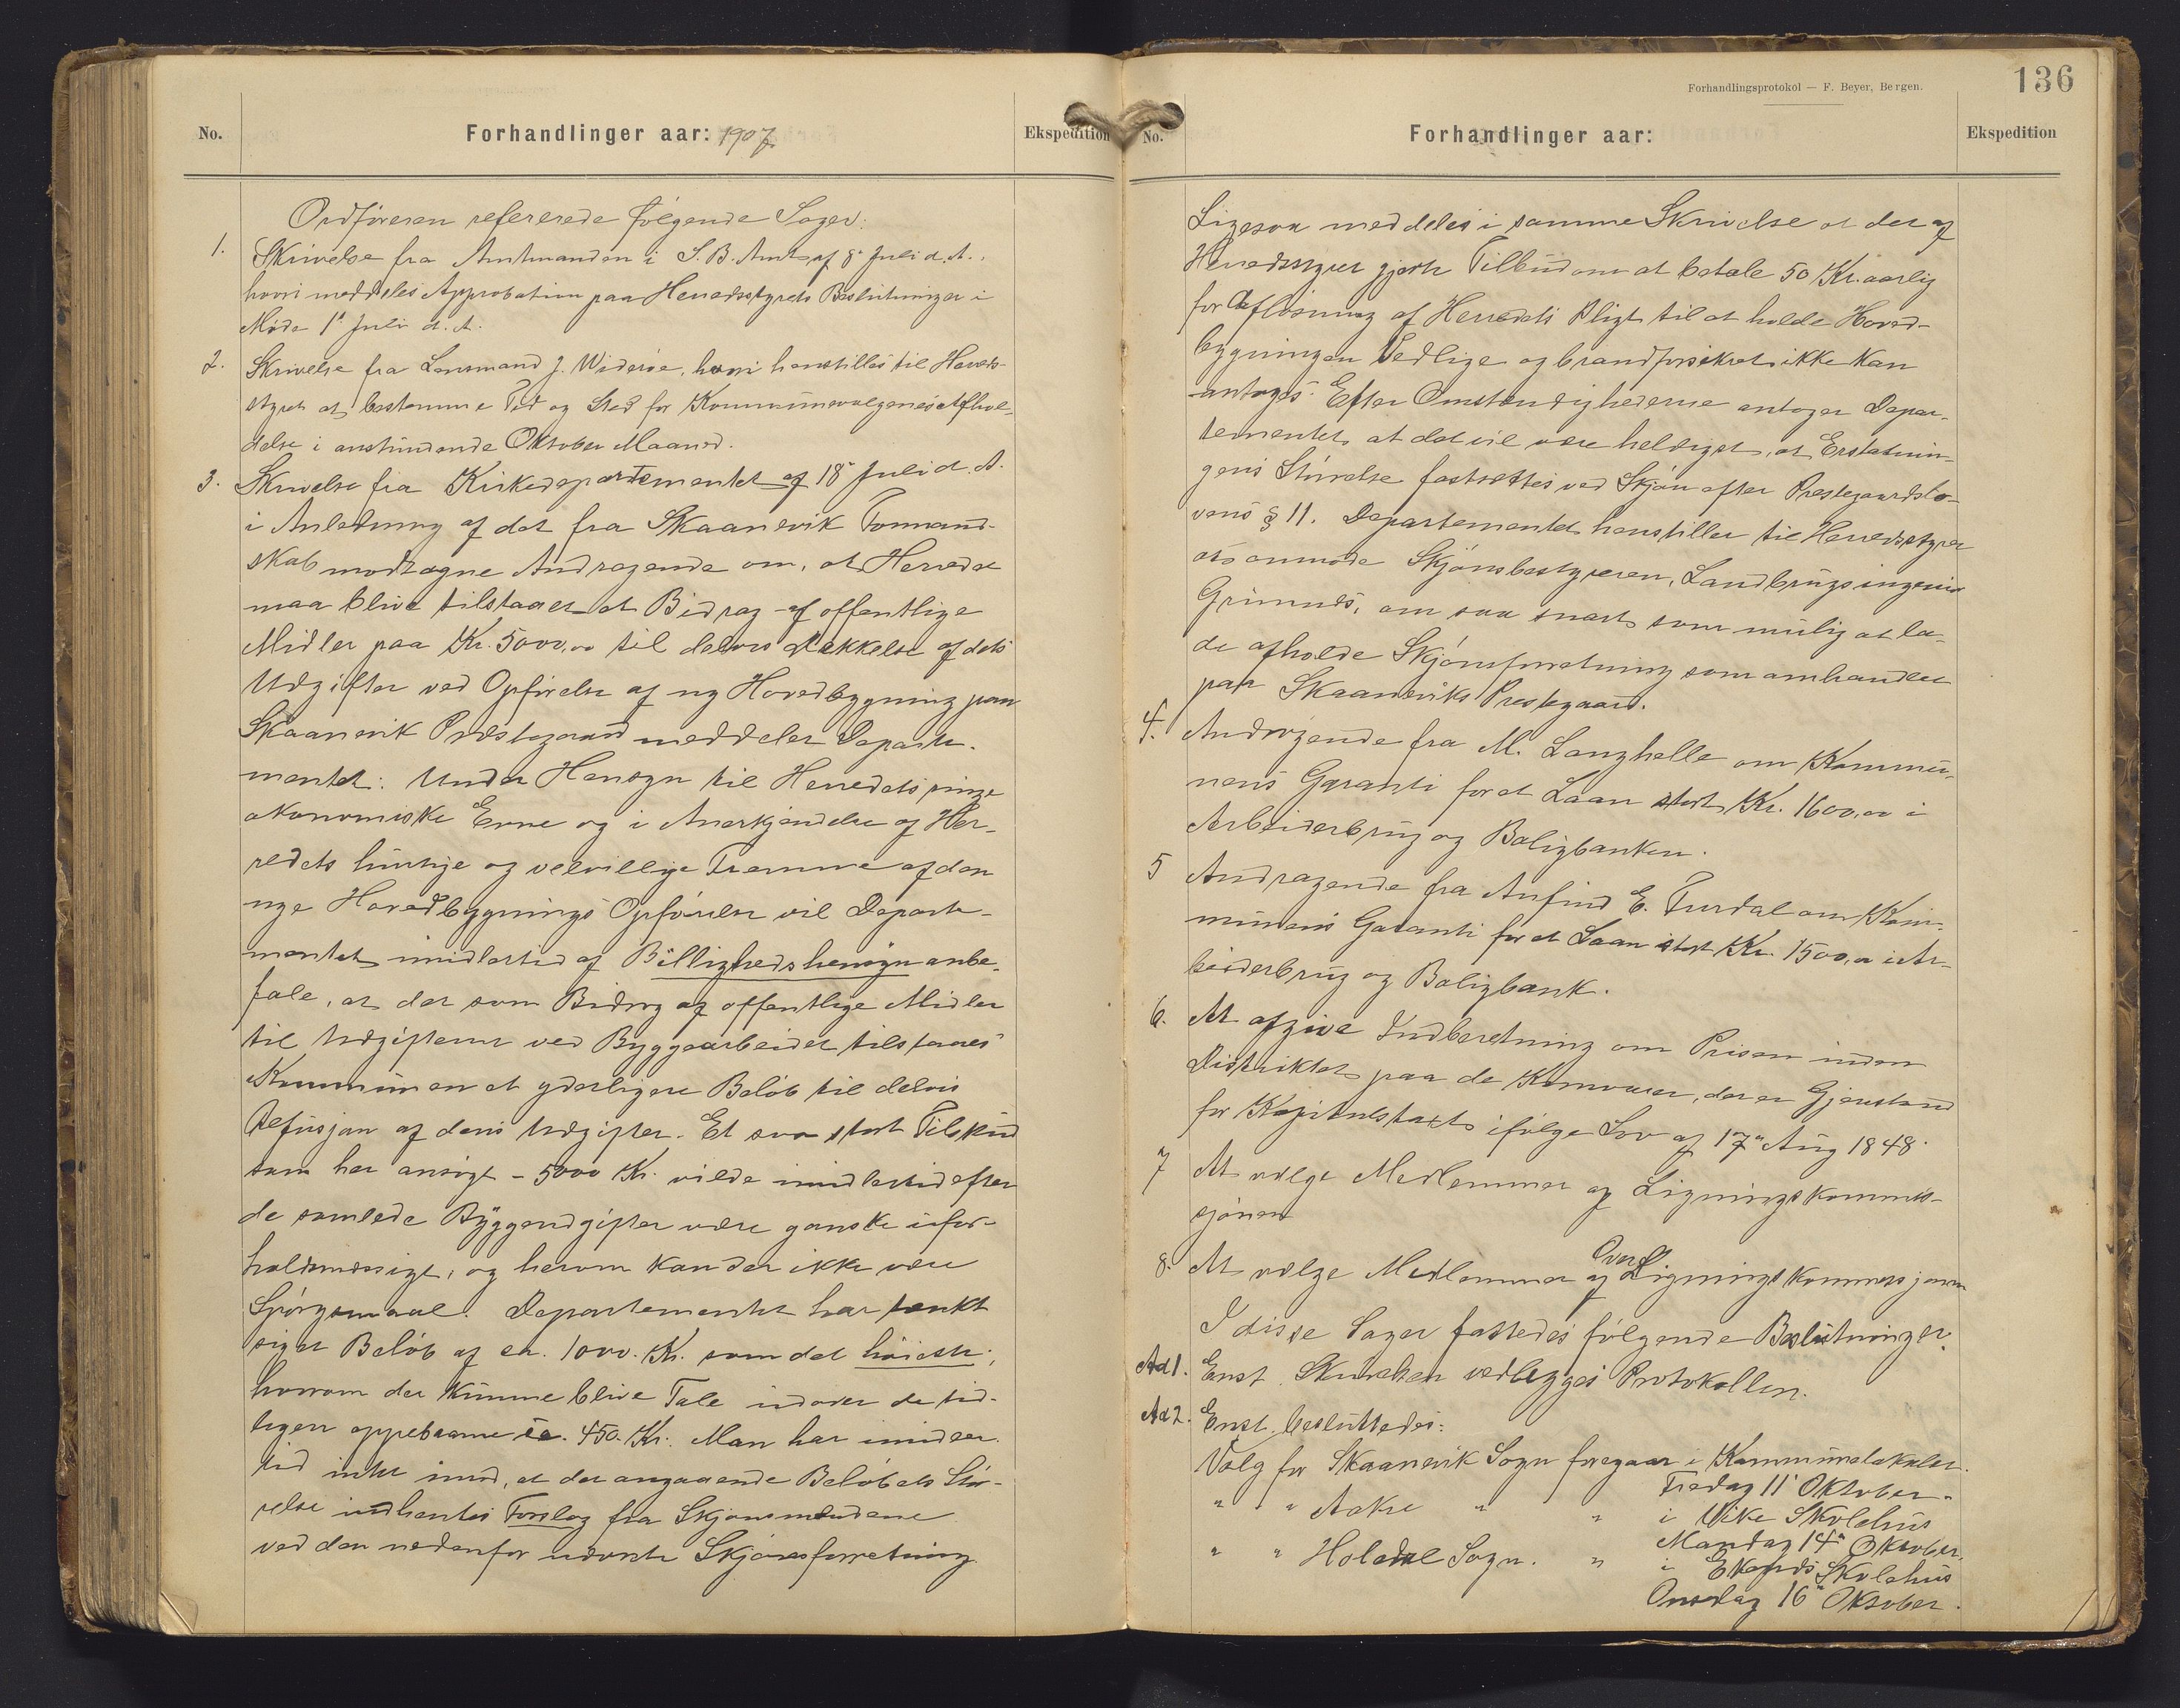 No.
Forhandlinger aar: 1907
Ekspedition
Ordføreren refererede følgende Sager:
1. Skrivelse fra Amtmanden i S. B. Amt af 8de Juli d. A.,
hvori meddeles Approbation paa Herredsstyrets Beslutninger i
Møde 1ste Juli d. A.
2. Skrivelse fra Lensmand J. Widerøe, hvori henstilles til Herreds-
styret at bestemme Tid og Sted for Kommunevalgenes Afhol-
delse i anstundende Oktober Maaned.
3. Skrivelse fra Kirkedepartementet af 18de Juli d. A.
i Anledning af det fra Skaanevik Formand-
skab modtagne Andragende om, at Herredet
maa blive tilstaaet et Bidrag af offentlige
Midler paa Kr. 5000,00 til delvis Dækkelse af dets
Udgifter ved Opførelse af ny Hovedbygning paa
Skaanevik Præstegaard meddeler Departe-
mentet: Under Hensyn til Herredets ringe
økonomiske Evne og i Anerkjendelse af Her-
redets hurtige og velvillige Fremme af den
nye Hovedbygnings Opførelse vil Departe-
mentet imidlertid af Billighedshensyn anbe-
fale, at der som Bidrag af offentlige Midler
til Udgifterne ved Byggearbeidet tilstaaes
Kommunen et yderligere Beløb til delvis
Refusjon af dens Udgifter. Et saa stort Tilskud
som her ansøgt - 5000 Kr. vilde imidlertid efter
de samlede Byggeudgifter være ganske ufor-
holdsmæssigt, og herom kan der ikke være
Spørgsmaal. Departementet har tænkt
sig et Beløb af ca. 1000. Kr. som det høieste,
hvorom der kunne blive Tale udover de tid-
ligere oppebaarne ca. 450. Kr. Man har imidler-
tid intet imod, at der angaaende Beløbets Stør-
relse indhentes Forslag fra Skjønsmændene
ved den nedenfor nævnte Skjønsforretning.
Forhandlingsprotokol — F. Beyer, Bergen.
136
No.
Forhandlinger aar:
Ekspedition
Ligesaa meddeles i samme Skrivelse at det af
Herredsstyret gjorte Tilbud om at betale 50 Kr. aarlig
for Afløsning af Herredets Pligt til at holde Hoved-
bygningen Vedlige og brandforsikret ikke kan
antages. Efter Omstændighederne antager Depar-
tementet, at det vil være heldigst, at Erstatnin-
gens Størrelse fastsættes ved Skjøn efter Præstegaardslo-
vens § 11. Departementet henstiller til Herredsstyret
at anmode Skjønsbestyreren, Landbrugsingeniør
Grimnes, om saa snart som mulig at la-
de afholde Skjønsforretning som omhandlet
paa Skaaneviks Prestegaard.
4. Andragende fra M. Langhelle om Kommu-
nens Garanti for et Laan stort Kr. 1600,00 i
Arbeiderbrug og Boligbanken.
5 Andragende fra Anfind E. Furdal om Kom-
munens Garanti for et Laan stort Kr. 1500,00 i Ar-
beiderbrug og Boligbank.
6. At afgive Indberetning om Prisen inden
Distriktet paa de Kornvarer, der er Gjenstand
for Kapitelstakst ifølge Lov af 17de Aug 1848.
7 At vælge Medlemmer af Ligningskommis-
sjonen
8. At vælge Medlemmer af Overligningskommissjonen
I disse Sager fattedes følgende Beslutninger.
Ad 1. Enst. Skrivelsen vedlægges Protokollen.
Ad 2. Enst. besluttedes:
Valg for Skaanevik Sogn foregaar i Kommunelokalet
Fredag 11te Oktober.
" " Aakre " " i Vike Skolehus
Mandag 14de Oktober.
" " Holedal Sogn. " i Ekelands Skolehus
Onsdag 16de Oktober.